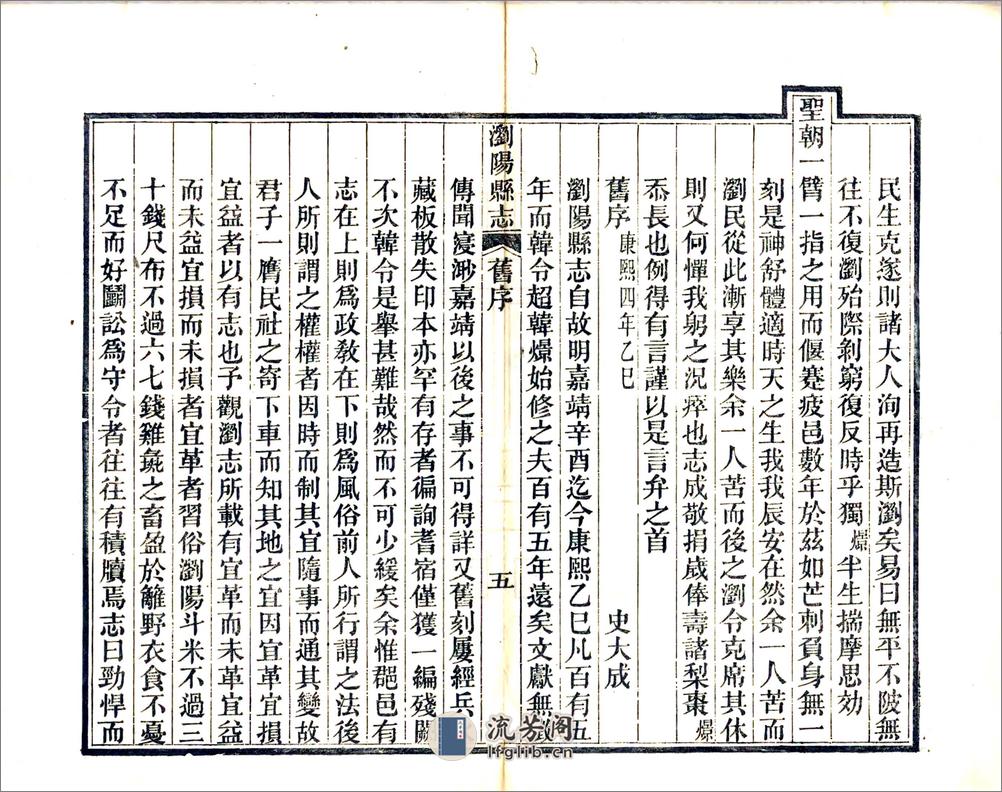 民生克遂則諸大人洵再造斯瀏矣易曰無平不陂無
往不復瀏殆際剝窮復反時乎獨爌半生揣摩思効
聖朝一臂一指之用而偃蹇疲邑數年於茲如芒刺負身無一
刻是神舒體適時天之生我我辰安在然余一人苦而
瀏民從此漸享其樂余一人苦而後之瀏令克席其休
則又何憚我躬之況瘁也志成敬捐歲俸壽諸梨棗爌
忝長也例得有言謹以是言弁之首
舊序康熙四年乙巳 史大成
瀏陽縣志自故明嘉靖辛酉迄今康熙乙巳凡百有五
年而韓令超韓爌始修之夫百有五年遠矣文獻無徵
瀏陽縣志 舊序 五
傳聞寖渺嘉靖以後之事不可得詳又舊刻屢經兵
藏板散失印本亦罕有存者徧詢耆宿僅獲一編殘闕
不次韓令是舉甚難哉然而不可少緩矣余惟郡邑有
志在上則爲政敎在下則爲風俗前人所行謂之法後
人所則謂之權權者因時而制其宜隨事而通其變故
君子一膺民社之寄下車而知其地之宜因宜革宜損
宜益者以有志也予觀瀏志所載有宜革而未革宜益
而未益宜損而未損者宜革者習俗瀏陽斗米不過三
十錢尺布不過六七錢雞彘之畜盈於籬野衣食不憂
不足而好鬬訟爲守令者往往有積牘焉志曰勁悍而
流芳阁
lfglib.cn